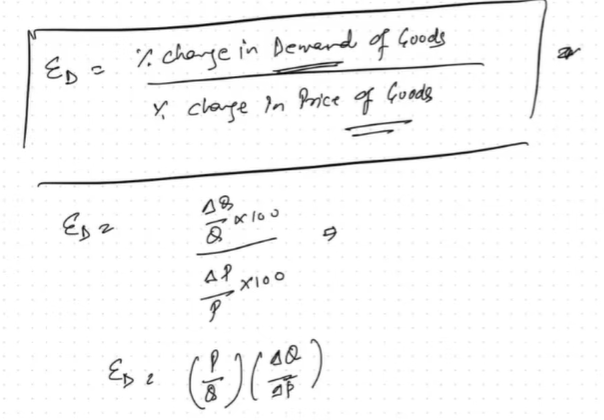 ℰ_D = % change in Demand of Goods
% change in Price of Goods
ℰ_D = ΔQ/Q × 100 ⇒
ΔP/P × 100
ℰ_D = (P/Q)(ΔQ/ΔP)